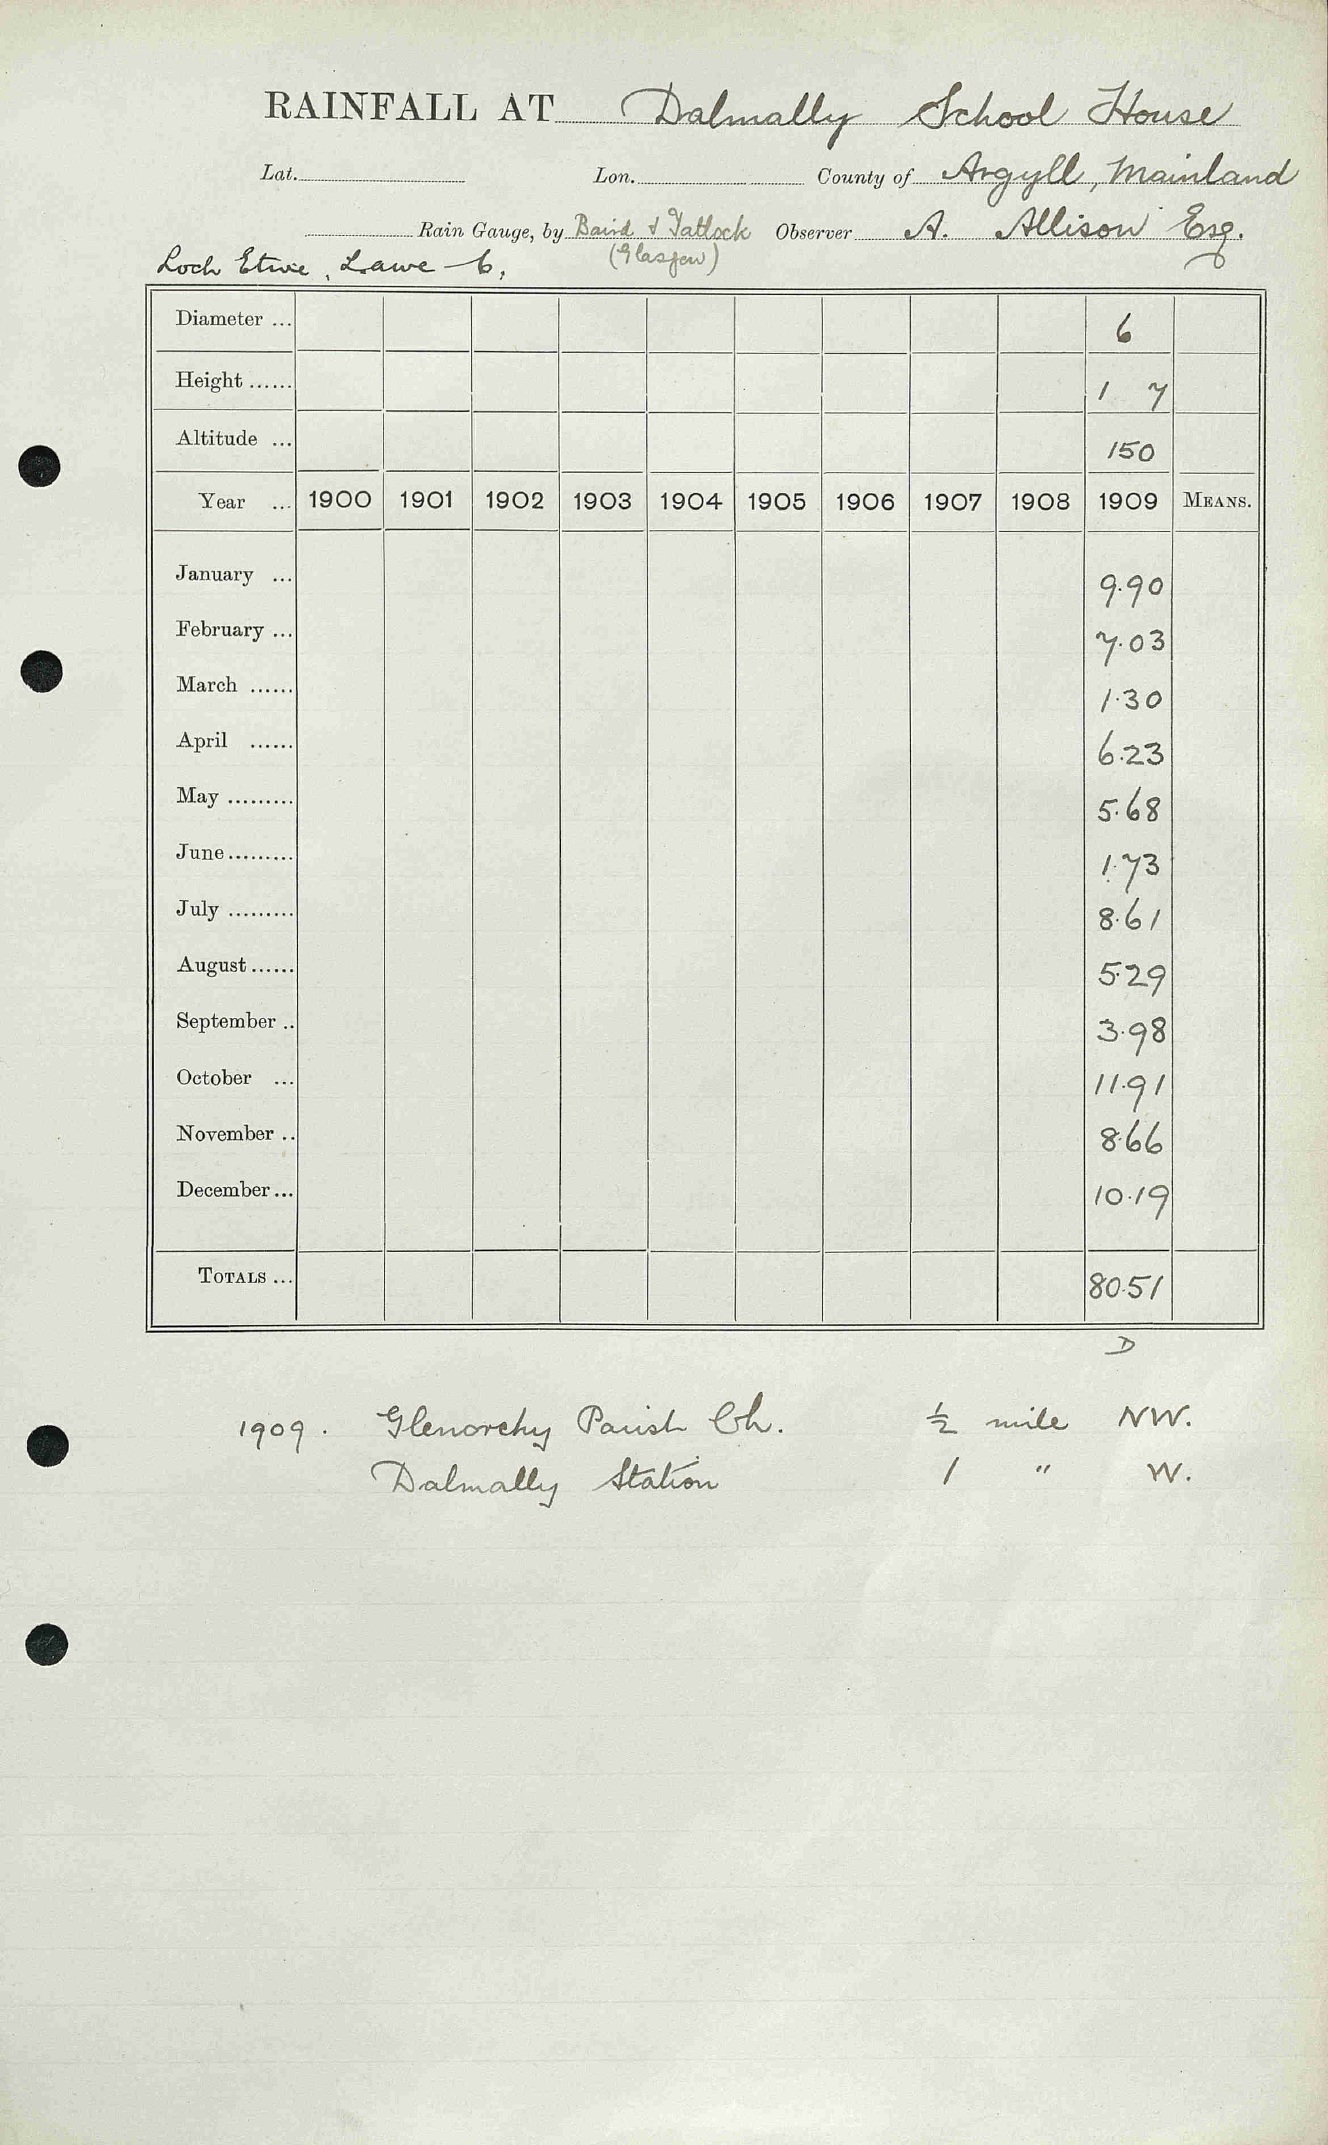 RAINFALL AT Dalmally School House
Lat. Lon. County of Argyll, Mainland
Rain Gauge, by Baird & Tatlock Observer A. Allison Esq.
(Glasgow)
Loch Etive, Lawe 6,
Diameter ... 6
Height ...... 1 7
Altitude ... 150
Year ... 1900 1901 1902 1903 1904 1905 1906 1907 1908 1909 MEANS.
January ... 9.90
February ... 7.03
March ...... 1.30
April ...... 6.23
May ......... 5.68
June ......... 1.73
July ......... 8.61
August ...... 5.29
September .. 3.98
October ... 11.91
November .. 8.66
December ... 10.19
TOTALS ... 80.51
D
1909. Glenorchy Parish Ch. ½ mile NW.
Dalmally Station 1 " W.